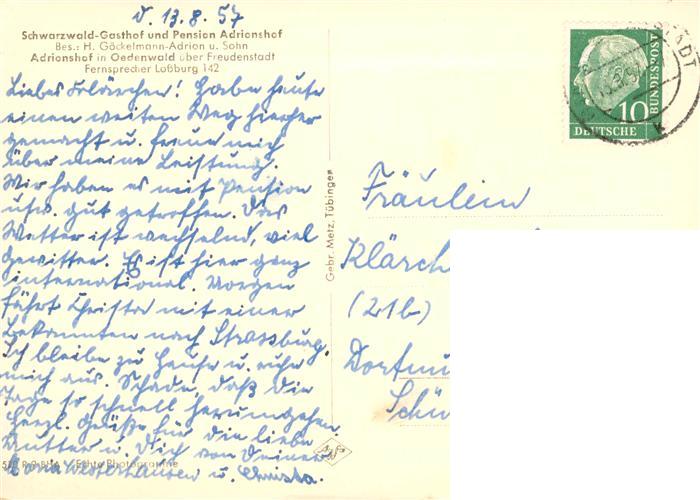 d. 13.8.57
Schwarzwald-Gasthof und Pension Adrionshof
Bes.: H. Gäckelmann-Adrion u. Sohn
Adrionshof in Oedenwald über Freudenstadt
Fernsprecher Loßburg 142
Liebes Klärchen! Habe heute
einen weiten Weg hierher
gemacht u. freue mich
über meine Leistung.
Wir haben es mit Pension
usw. gut getroffen. Das
Wetter ist wechselnd, viel
Gewitter. Es ist hier ganz
international. Morgen
fährt Christa mit einer
Bekannten nach Strassburg.
Ich bleibe zu Hause u. ruhe
mich aus. Schade, daß die
Tage so schnell herumgehen.
Herzl. Grüße für die liebe
Mutter u. Dich von Deiner
u. Christa.
Echte Photographie
Gebr. Metz, Tübingen
10
DEUTSCHE
BUNDESPOST
Fräulein
Klärch
(21b)
Dortmu
Schü